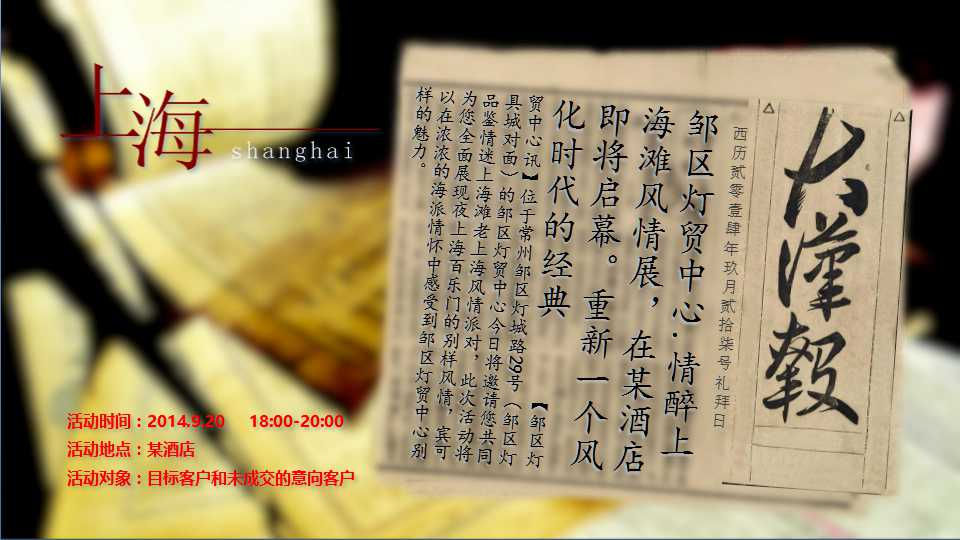 上海
shanghai
大漢報
西历贰零壹肆年玖月贰拾柒号礼拜日
邹区灯贸中心·情醉上
海滩风情展，在某酒店
即将启幕。重新一个风
化时代的经典
【邹区灯
贸中心讯】位于常州邹区灯城路29号（邹区灯
具城对面）的邹区灯贸中心今日将邀请您共同
品鉴情迷上海滩老上海风情派对，此次活动将
为您全面展现夜上海百乐门的别样风情，宾可
以在浓浓的海派情怀中感受到邹区灯贸中心别
样的魅力。
活动时间：2014.9.20 18:00-20:00
活动地点：某酒店
活动对象：目标客户和未成交的意向客户